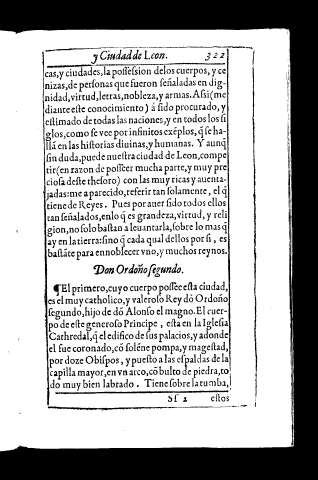 y Ciudad de Leon. 322
cas, y ciudades, la possession delos cuerpos, y ce
nizas, de personas que fueron señaladas en dig-
nidad, virtud, letras, nobleza, y armas. Assi (me
diante este conocimiento) á sido procurado, y
estimado de todas las naciones, y en todos los si
glos, como se vee por infinitos exẽplos, q̃ se ha-
llã en las historias diuinas, y humanas. Y aunq̃
sin duda, puede nuestra ciudad de Leon, compe
tir (en razon de posseer mucha parte, y muy pre
ciosa deste thesoro) con las muy ricas y auenta-
jadas: me a parecido, referir tan solamente, el q̃
tiene de Reyes. Pues por auer sido todos ellos
tan señalados, enlo q̃ es grandeza, virtud, y reli
gion, no solo bastan a leuantarla, sobre lo mas q̃
ay en la tierra: sino q̃ cada qual dellos por si, es
bastãte para ennoblecer vno, y muchos reynos.
Don Ordoño segundo.
¶ El primero, cuyo cuerpo possee esta ciudad,
es el muy catholico, y valeroso Rey dõ Ordoño
segundo, hijo de dõ Alonso el magno. El cuer-
po de este generoso Principe, esta en la Iglesia
Cathredal, q̃ el edifico de sus palacios, y adonde
el fue coronado, cõ solẽne pompa, y magestad,
por doze Obispos, y puesto a las espaldas de la
capilla mayor, en vn arco, cõ bulto de piedra, to
do muy bien labrado. Tiene sobre la tumba,
Sſ 2 estos